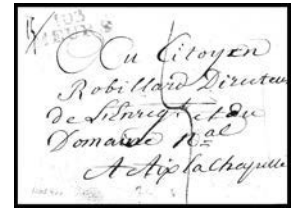 103
Au Citoyen
Robillard Directeur
de L'Enregt et du
Domaine Nal
A Aix la Chapelle